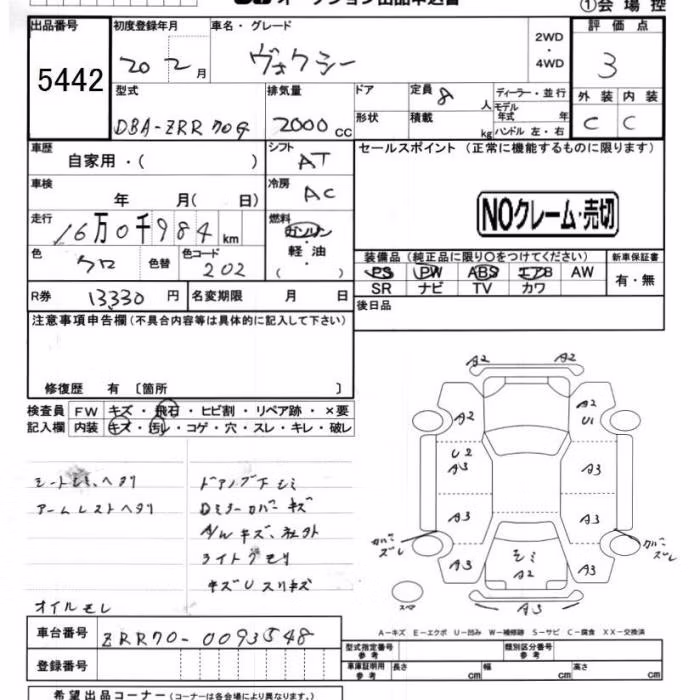 オークション出品申込書
①会場控
出品番号 初度登録年月 車名・グレード 評価点
5442 20 2月 ヴォクシー 2WD・4WD 3
型式 排気量 ドア 定員 8 人 ディーラー・並行 外装 内装
DBA-ZRR70G 2000 cc 形状 積載 kg モデル年式 年 ハンドル 左・右 C C
車歴 シフト セールスポイント (正常に機能するものに限ります)
自家用・( ) AT
車検 冷房
年 月( 日) AC NOクレーム・売切
走行 燃料
16万0千984km ガソリン・軽油 ( )
色 色替 色コード 装備品 (純正品に限り○をつけてください) 新車保証書
クロ 202 PS PW ABS エアB AW 有・無
SR ナビ TV カワ
R券 13,330 円 名変期限 月 日 後日品
注意事項申告欄(不具合内容等は具体的に記入して下さい)
修復歴 有 〔箇所 〕
検査員 FW キズ・飛石・ヒビ割・リペア跡・×要
記入欄 内装 キズ・汚レ・コゲ・穴・スレ・キレ・破レ
シートシミ、ヘタリ ドアノブ下シミ
アームレストヘタリ Dミラーカバーキズ
A/Wキズ、
ライトクモリ
キズUスリキズ
オイルモレ
A2 A2
A2 A2
U1
U2
A3 A3
A3 A3
カバーズレ カバーズレ
シミ
A3 A2 A3
スペア A3
A-キズ E-エクボ U-凹み W-補修跡 S-サビ C-腐食 XX-交換済
車台番号 ZRR70-0093548 型式指定番号 参考 類別区分番号 参考
登録番号 車庫証明用 参考 長さ cm 幅 cm 高さ cm
希望出品コーナー(コーナーは各会場により異なります。)